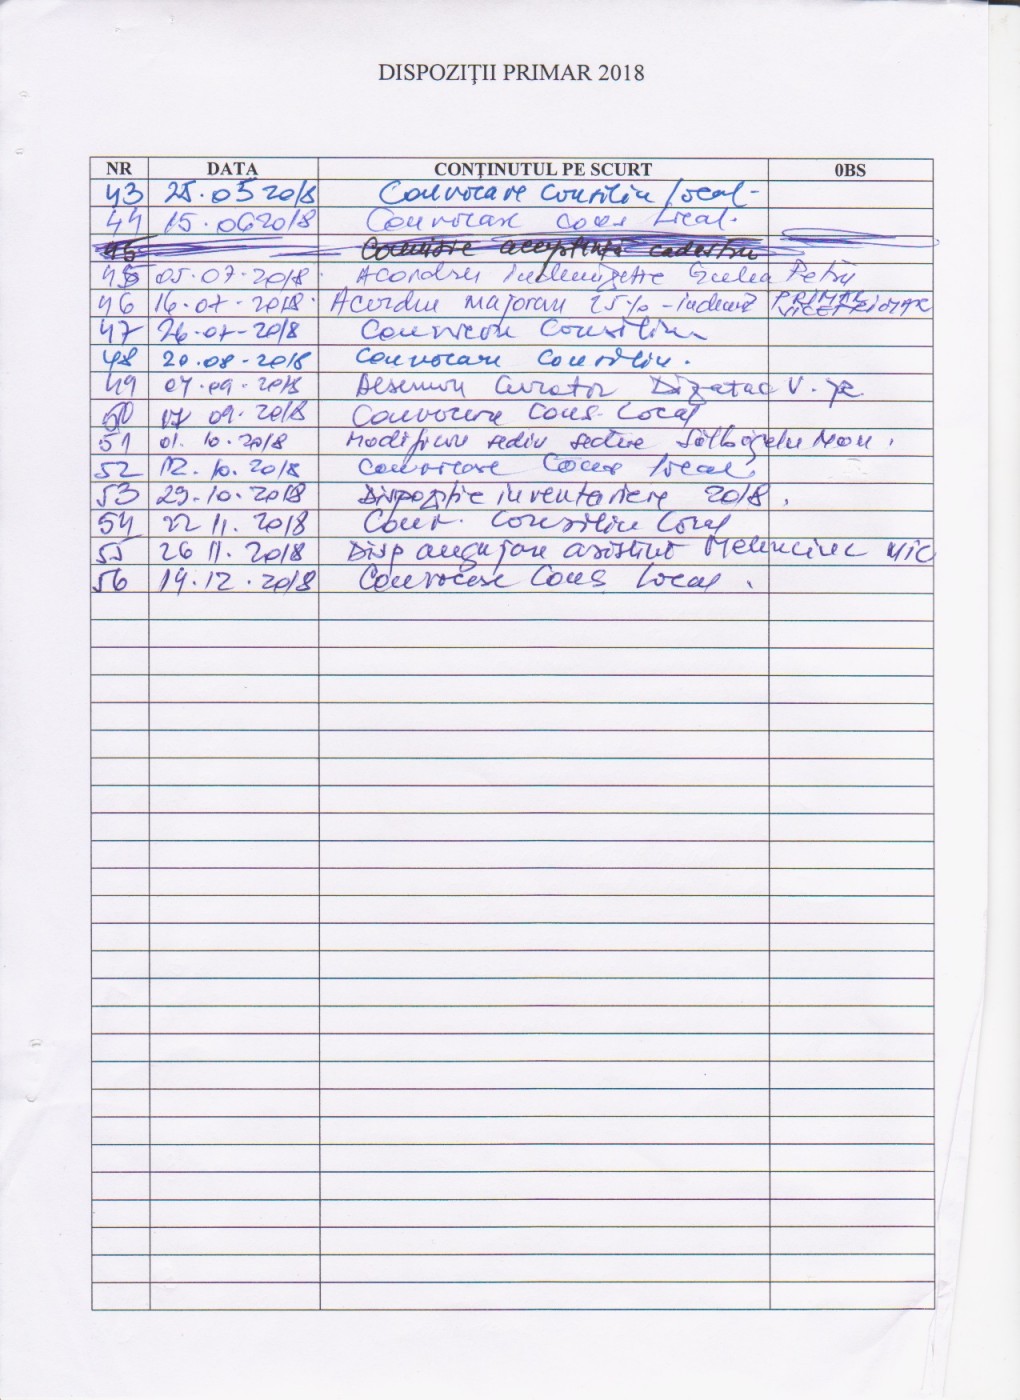 DISPOZIŢII PRIMAR 2018
NR DATA CONŢINUTUL PE SCURT 0BS
43 25.05 2018 Convocare Consiliu local-
44 15.06 2018 Convocare cons local.
45 Comisie cadastru
45 05.07.2018 Acordrea Petru
46 16.07.2018. majorari 25% - PRIMAR VICEPRIMAR
47 26-07-2018 Consiliu
48 20.08-2018 Convocare Consiliu.
49 07.09.2018 Curator
50 17 09.2018 Convocare Cons. Local
51 01.10.2018 Modificare sediu sectie
52 12.10.2018 Convocare Cons local.
53 29.10.2018 Dispoziţie inventariere 2018.
54 22 11.2018 Conv. Consiliu Local
55 26 11.2018 Disp angajare asistent
56 19.12.2018 Convocare Cons Local.